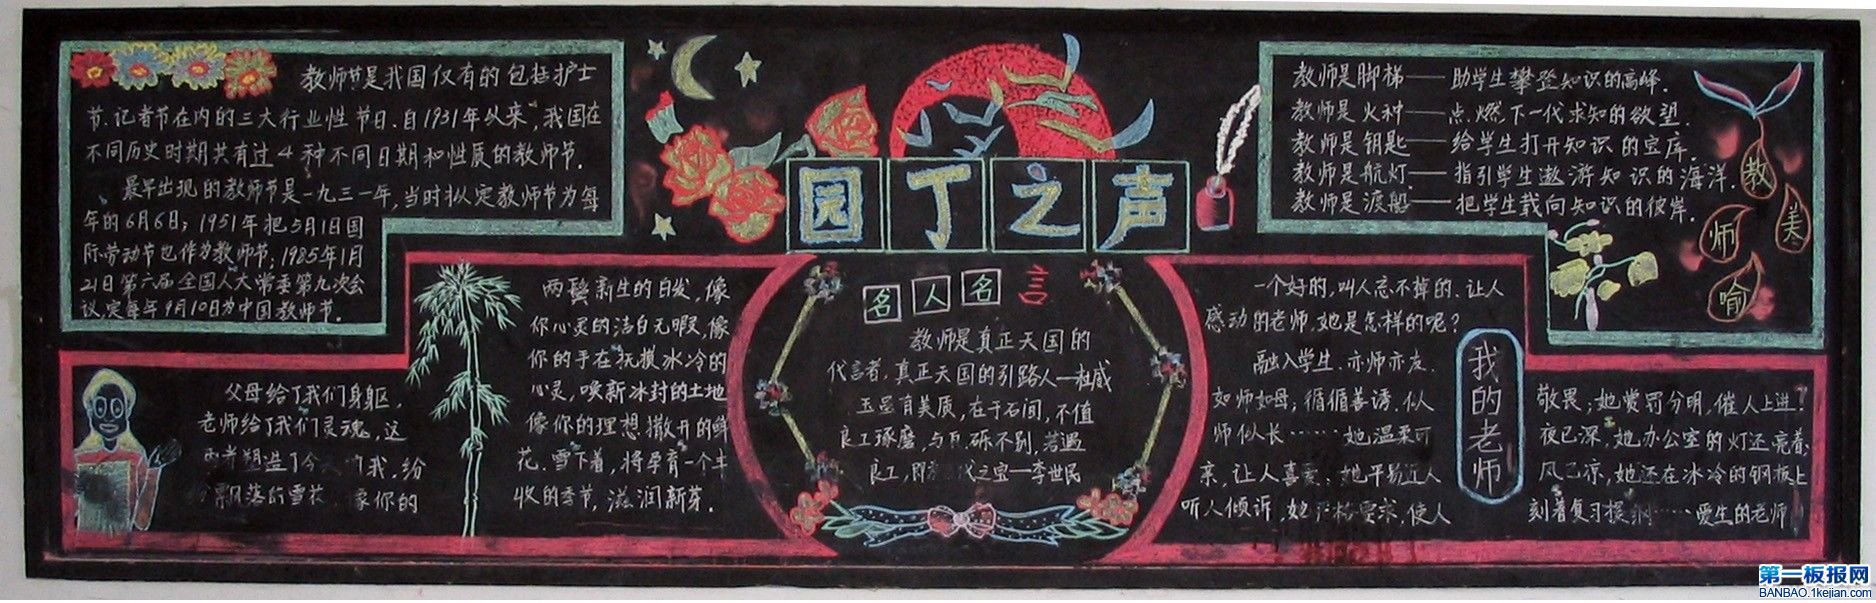 园丁之声
教师节是我国仅有的包括护士
节、记者节在内的三大行业性节日。自1931年以来,我国在
不同历史时期共有过4种不同日期和性质的教师节。
最早出现的教师节是一九三一年,当时拟定教师节为每
年的6月6日;1951年把5月1日国
际劳动节也作为教师节;1985年1月
21日第六届全国人大常委第九次会
议,定每年9月10日为中国教师节。
父母给了我们身躯,
老师给了我们灵魂,这
两者塑造了今 我,纷
飘落的雪花 像你的
两鬓新生的白发,像
你心灵的洁白无暇,像
你的手在抚摸冰冷的
心灵,唤新冰封的土地
像你的理想撒开的鲜
花。雪下着,将孕育一个丰
收的季节,滋润新芽。
名人名言
教师是真正天国的
代言者,真正天国的引路人—杜威
玉虽有美质,在于石间,不值
良工琢磨,与瓦砾不别,若遇
良工,即 代之宝—李世民
教师是脚梯——助学生攀登知识的高峰。
教师是火种——点燃下一代求知的欲望。
教师是钥匙——给学生打开知识的宝库。
教师是航灯——指引学生遨游知识的海洋。
教师是渡船——把学生载向知识的彼岸。
教
师
美
喻
一个好的,叫人忘不掉的、让人
感动的老师,她是怎样的呢?
融入学生、亦师亦友。
如师如母;循循善诱、似
师似长……她温柔可
亲,让人喜爱;她平易近人
听人倾诉,她 格要求,使人
我的老师
敬畏;她赏罚分明,催人上进。
夜已深,她办公室的灯还亮着;
风已凉,她还在冰冷的钢板上
刻着复习提纲……爱生的老师
第一板报网
BANBAO.1kejian.com